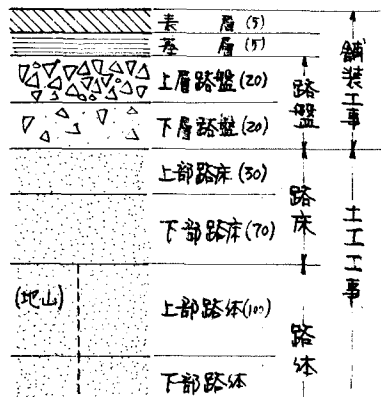 表 層 (5)
基 層 (5)
上層路盤 (20)
下層路盤 (20)
上部路床 (30)
下部路床 (70)
(地山)
上部路体 (100)
下部路体
路盤
路床
路体
舗装工事
土工工事